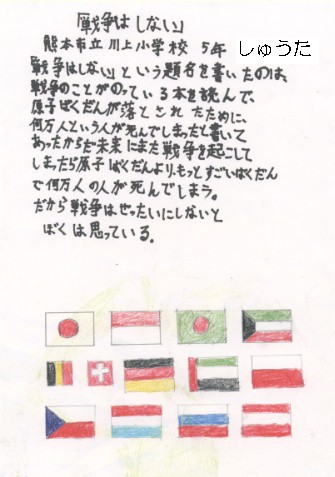 「戦争はしない」
熊本市立川上小学校 5年 しゅうた
「戦争はしない」という題名を書いたのは、
戦争のことがのっている本を読んで、
原子ばくだんが落とされたために、
何万人という人が死んでしまったと書いて
あったからだ未来にまた戦争を起こして
しまったら原子ばくだんより、もっとすごいばくだん
で何万人の人が死んでしまう。
だから戦争はぜったいにしないと
ぼくは思っている。